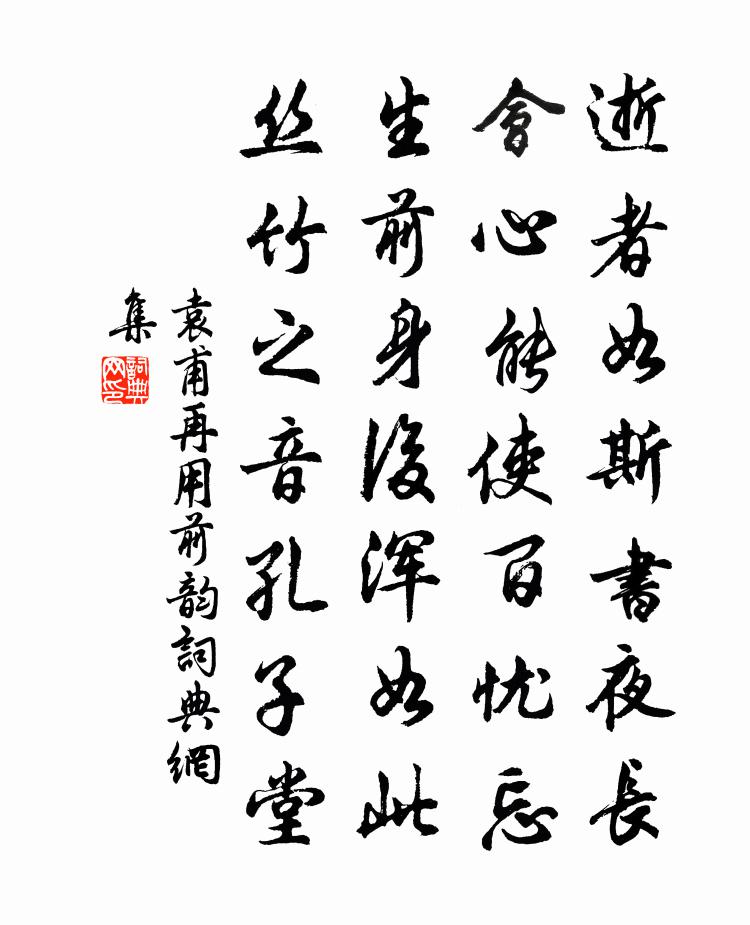 逝者如斯書夜長
會心能使百忧忘
生前身後浑如此
丝竹之音孔子堂
袁甫再用前韵詞典網
集
詞典
网印